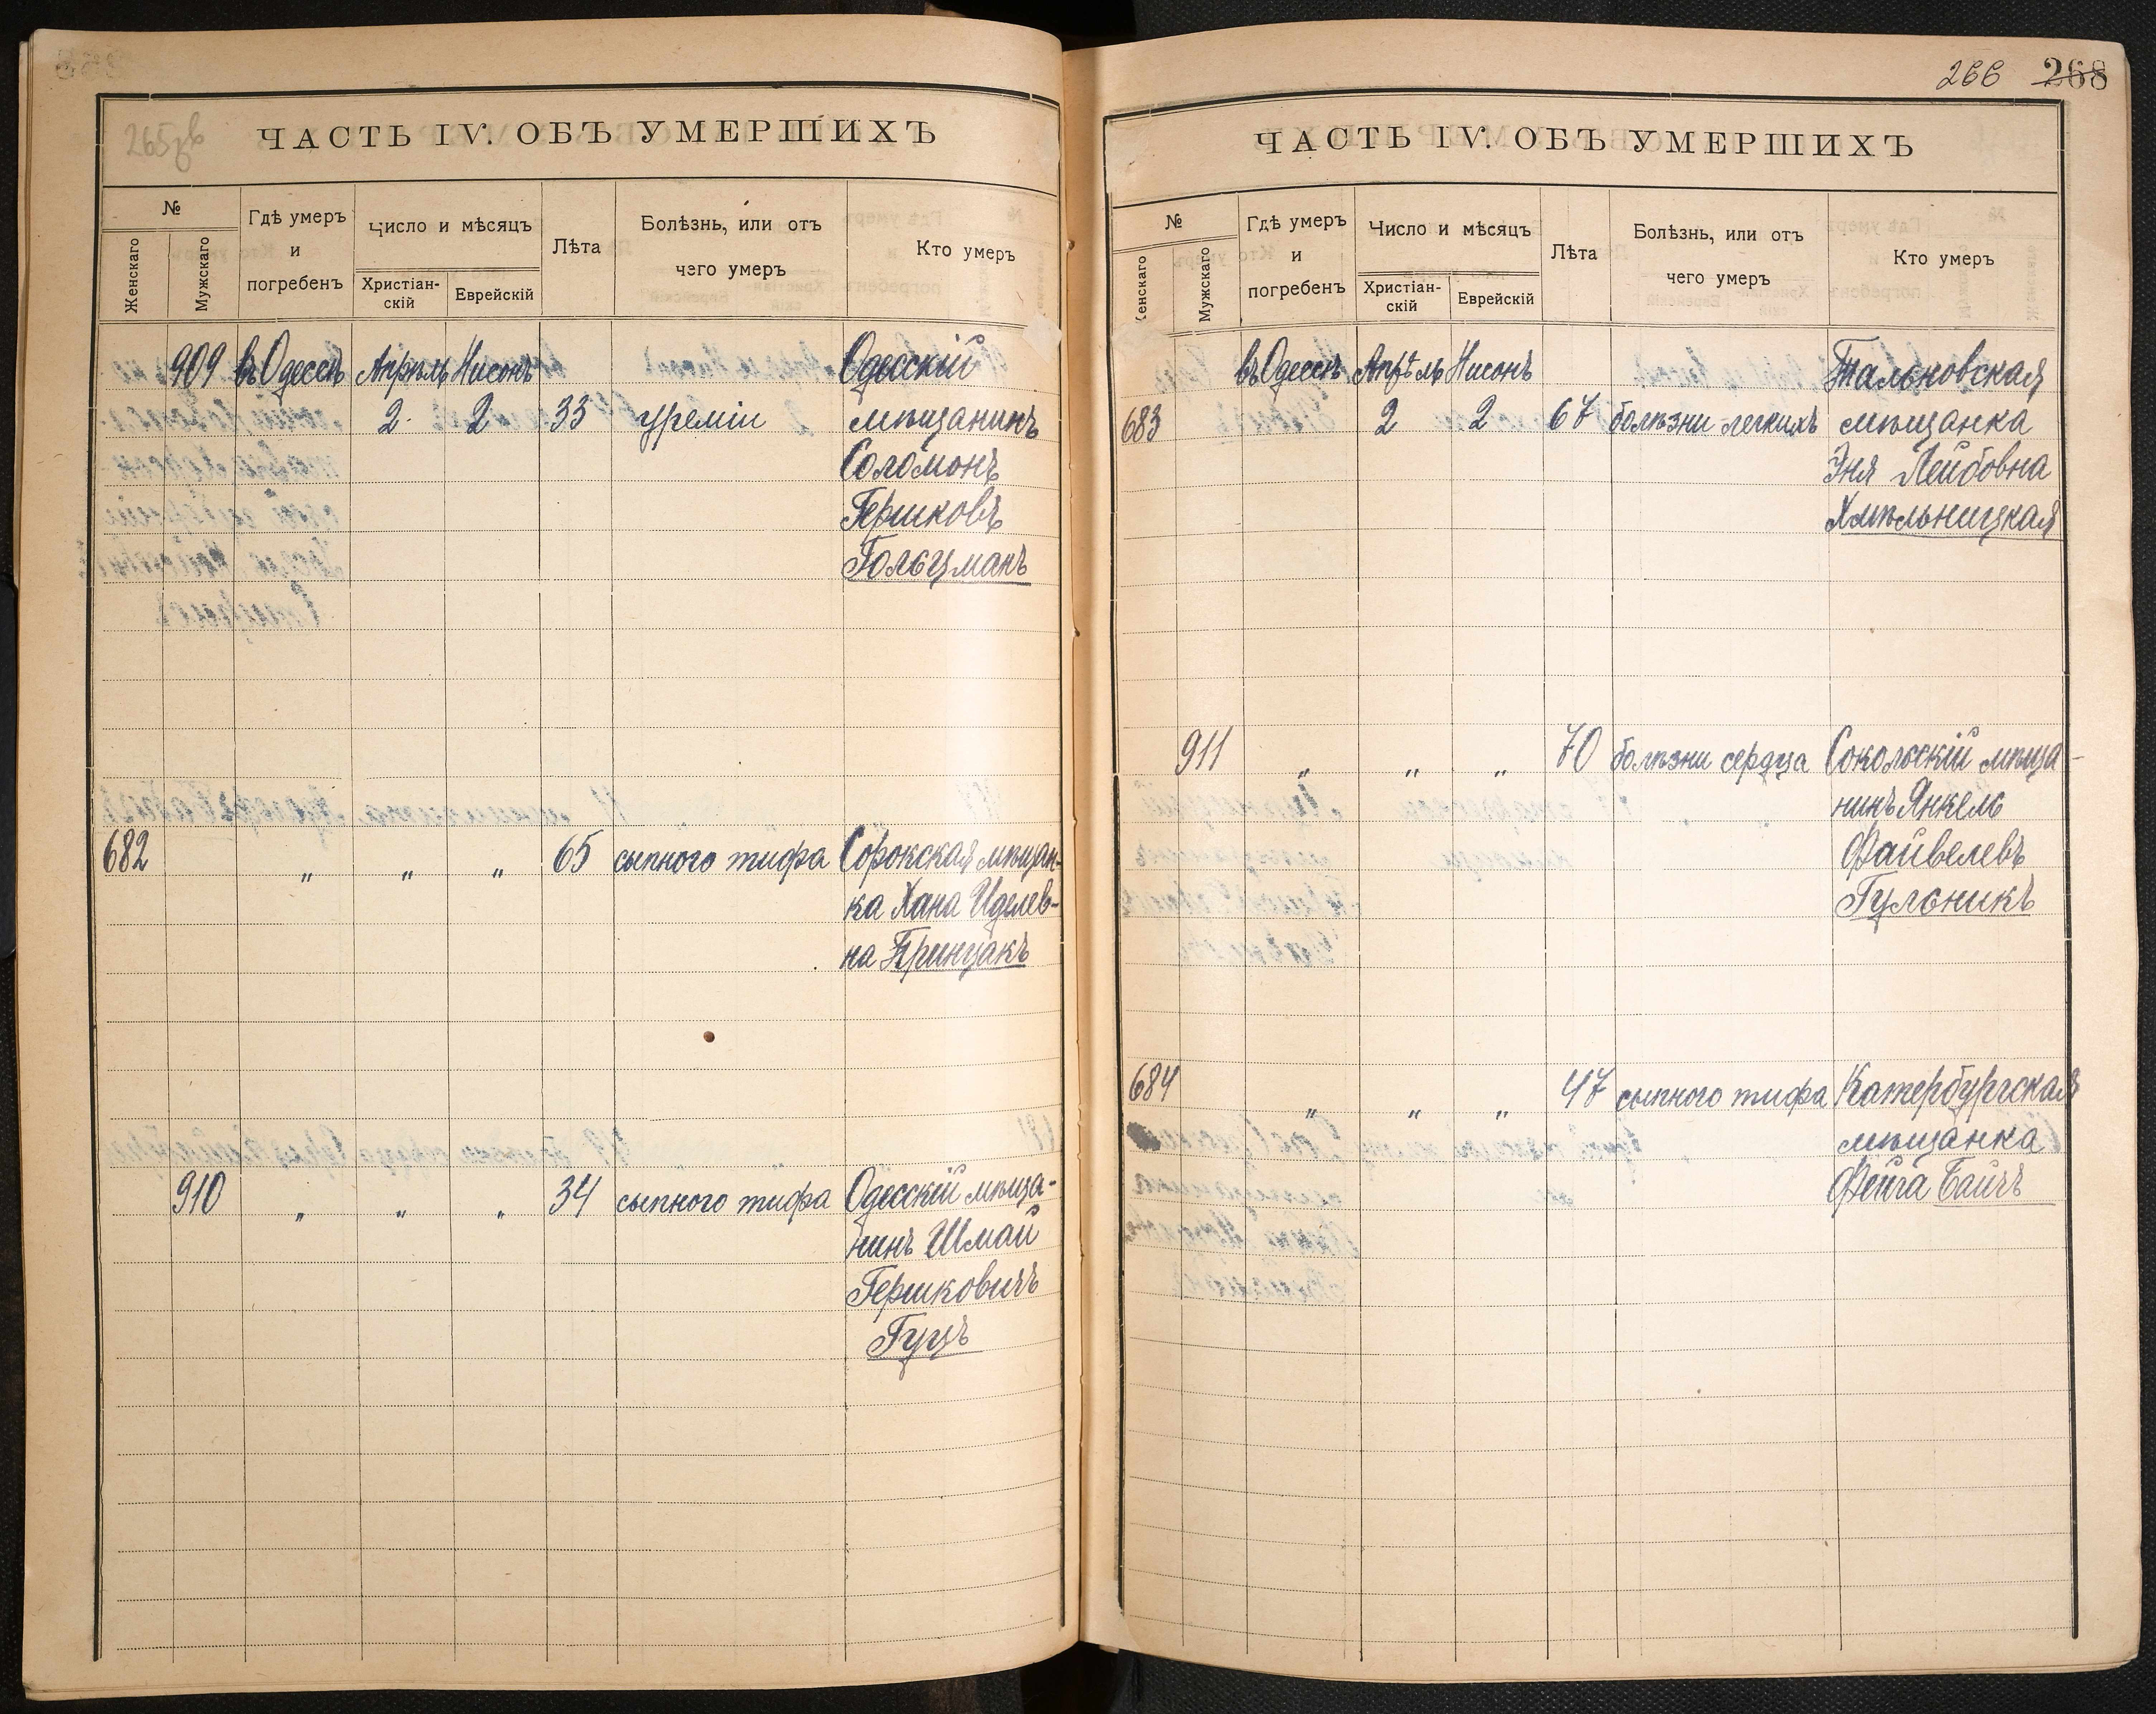 265зв
ЧАСТЬ IV. ОБЪ УМЕРШИХЪ
№
Женскаго
Мужскаго
Гдѣ умеръ
и
погребенъ
Число и мѣсяцъ
Христіан-
скій
Еврейскій
Лѣта
Болѣзнь, или отъ
чего умеръ
Кто умеръ
909 въ Одессѣ Апрѣль Нисонъ Одесскій
2. 2 33 уреміи мѣщанинъ
Соломонъ
Гершковъ
Гольцманъ
682 „ „ „ 65 сыпного тифа Сорокская мѣщан-
ка Хана Иделев-
на Принцакъ
910 „ „ „ 34 сыпного тифа Одесскій мѣща-
нинъ Шмай
Гершковичъ
Гуцъ
266 268
ЧАСТЬ IV. ОБЪ УМЕРШИХЪ
№
Женскаго
Мужскаго
Гдѣ умеръ
и
погребенъ
Число и мѣсяцъ
Христіан-
скій
Еврейскій
Лѣта
Болѣзнь, или отъ
чего умеръ
Кто умеръ
въ Одессѣ Апрѣль Нисонъ Тальновская
683 2 2 67 болѣзни легкихъ мѣщанка
Эня Лейбовна
Хмѣльницкая
911 „ „ „ 70 болѣзни сердца Сокольскій мѣща-
нинъ Янкель
Файвелевъ
Гульникъ
684 „ „ „ 47 сыпного тифа Катербургская
мѣщанка
Фейга Байчъ